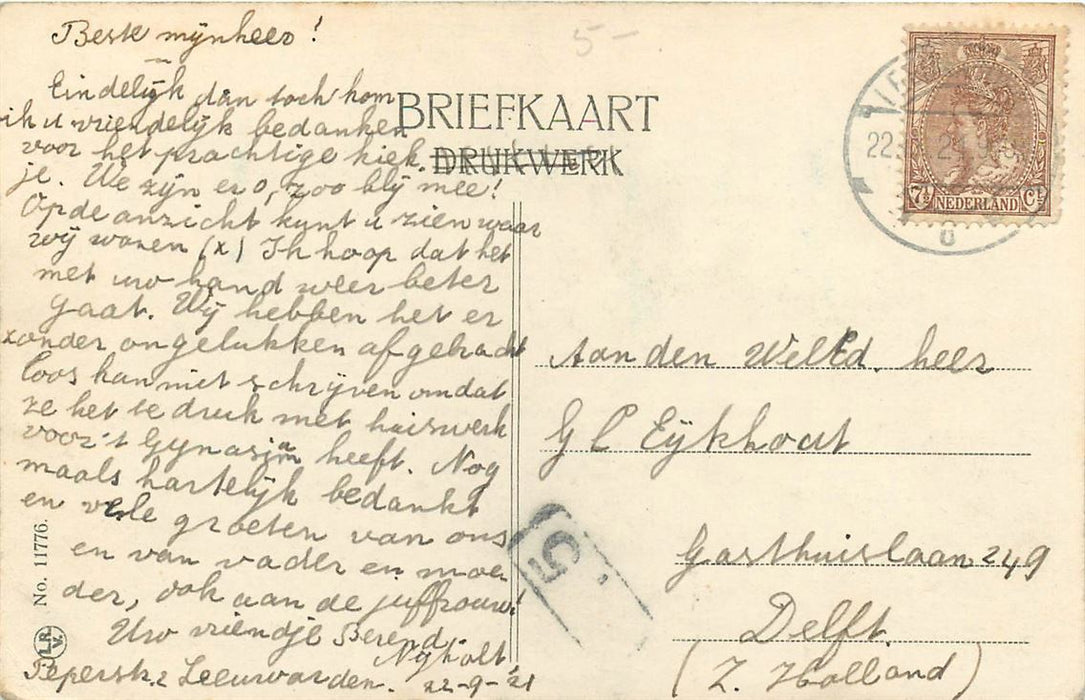 Beste mynheer!
Eindelijk dan toch kom
ik u vriendelijk bedanken
voor het prachtige kiek-
je. We zijn er o, zoo blij mee!
Op de anzicht kunt u zien waar
wij wonen (x) Ik hoop dat het
met uw hand weer beter
gaat. Wij hebben het er
zonder ongelukken afgebracht
Coos kan niet schrijven omdat
ze het te druk met huiswerk
voor 't Gynasim heeft. Nog
maals hartelijk bedankt
en vele groeten van ons
en van vader en moe
der, ook aan de juffrouw!
Uw vriendje Berend
Nijholt
Peperstr. 2 Leeuwarden. 22-9-'21
No. 11776.
L.R.
V.
5-
BRIEFKAART
DRUKWERK
7½ NEDERLAND Ct
22.
6
Aan den WelEd. heer
G C Eijkhout
Gasthuislaan 249
Delft.
(Z. Holland)
5